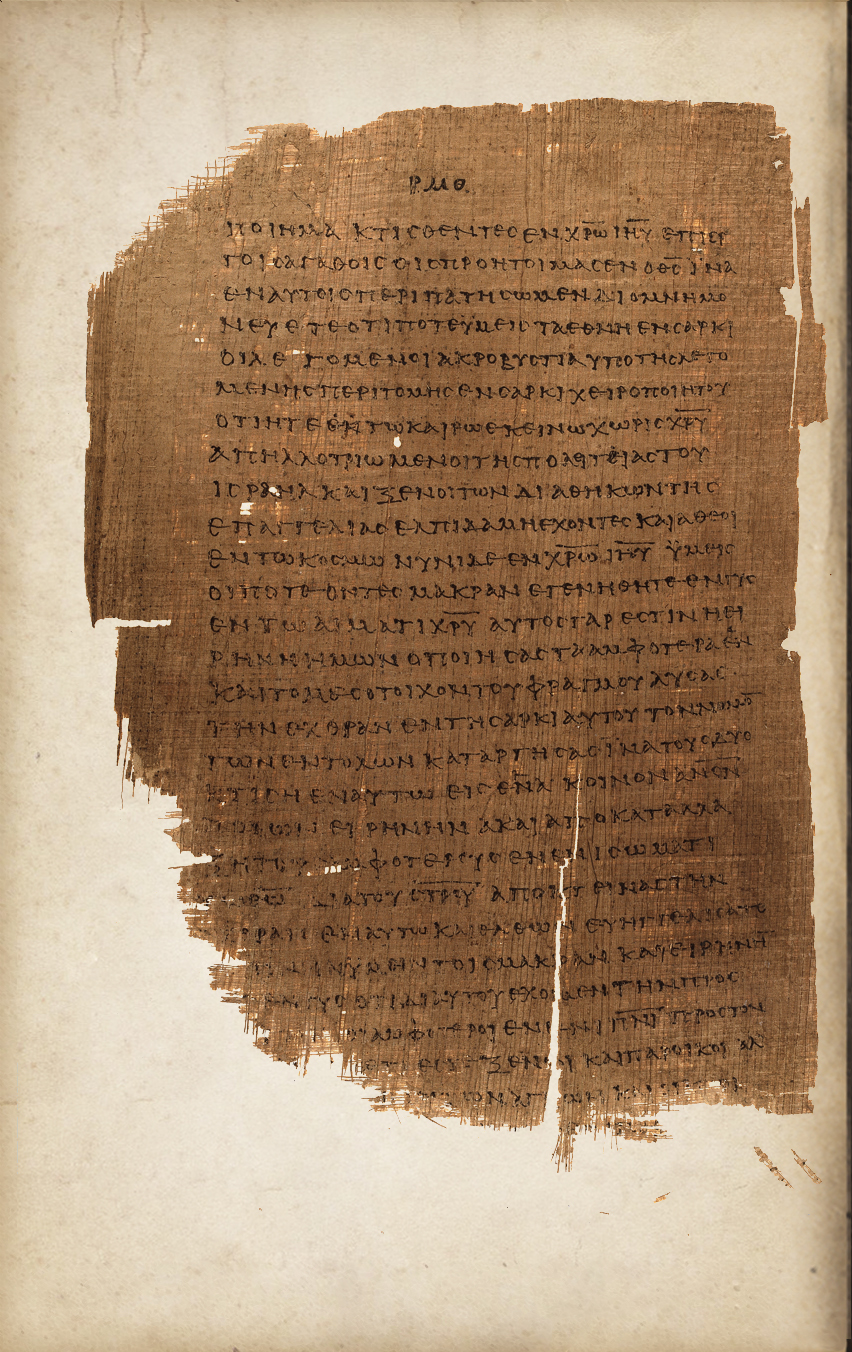 ΡΜΘ
ΠΟΙΗΜΑ ΚΤΙϹΘΕΝΤΕϹ ΕΝ Χ̅Ρ̅Ω̅ Ι̅Η̅Υ̅ ΕΠΙ ΕΡ
ΓΟΙϹ ΑΓΑΘΟΙϹ ΟΙϹ ΠΡΟΗΤΟΙΜΑϹΕΝ Ο Θ̅Ϲ̅ ΙΝΑ
ΕΝ ΑΥΤΟΙϹ ΠΕΡΙΠΑΤΗϹΩΜΕΝ ΔΙΟ ΜΝΗΜΟ
ΝΕΥΕΤΕ ΟΤΙ ΠΟΤΕ ΥΜΕΙϹ ΤΑ ΕΘΝΗ ΕΝ ϹΑΡΚΙ
ΟΙ ΛΕΓΟΜΕΝΟΙ ΑΚΡΟΒΥϹΤΙΑ ΥΠΟ ΤΗϹ ΛΕΓΟ
ΜΕΝΗϹ ΠΕΡΙΤΟΜΗϹ ΕΝ ϹΑΡΚΙ ΧΕΙΡΟΠΟΙΗΤΟΥ
ΟΤΙ ΗΤΕ ΕΝ ΤΩ ΚΑΙΡΩ ΕΚΕΙΝΩ ΧΩΡΙϹ Χ̅Ρ̅Υ̅
ΑΠΗΛΛΟΤΡΙΩΜΕΝΟΙ ΤΗϹ ΠΟΛΙΤΕΙΑϹ ΤΟΥ
ΙϹΡΑΗΛ ΚΑΙ ΞΕΝΟΙ ΤΩΝ ΔΙΑΘΗΚΩΝ ΤΗϹ
ΕΠΑΓΓΕΛΙΑϹ ΕΛΠΙΔΑ ΜΗ ΕΧΟΝΤΕϹ ΚΑΙ ΑΘΕΟΙ
ΕΝ ΤΩ ΚΟϹΜΩ ΝΥΝΙ ΔΕ ΕΝ Χ̅Ρ̅Ω̅ Ι̅Η̅Υ̅ ΫΜΕΙϹ
ΟΙ ΠΟΤΕ ΟΝΤΕϹ ΜΑΚΡΑΝ ΕΓΕΝΗΘΗΤΕ ΕΝΓΥϹ
ΕΝ ΤΩ ΑΙΜΑΤΙ Χ̅Ρ̅Υ̅ ΑΥΤΟϹ ΓΑΡ ΕϹΤΙΝ Η ΕΙ
ΡΗΝΗ ΗΜΩΝ Ο ΠΟΙΗϹΑϹ ΤΑ ΑΜΦΟΤΕΡΑ ΕΝ
ΚΑΙ ΤΟ ΜΕϹΟΤΟΙΧΟΝ ΤΟΥ ΦΡΑΓΜΟΥ ΛΥϹΑϹ
ΤΗΝ ΕΧΘΡΑΝ ΕΝ ΤΗ ϹΑΡΚΙ ΑΥΤΟΥ ΤΟΝ ΝΟΜΟΝ
ΤΩΝ ΕΝΤΟΛΩΝ ΚΑΤΑΡΓΗϹΑϹ ΙΝΑ ΤΟΥϹ ΔΥΟ
ΚΤΙϹΗ ΕΝ ΑΥΤΩ ΕΙϹ ΕΝΑ ΚΟΙΝΟΝ Α̅Ν̅Ο̅Ν̅
ΕΙΡΗΝΗΝ ΚΑΙ ΑΠΟΚΑΤΑΛΛΑ
ΑΜΦΟΤΕΡΟΥϹ ΕΝ ΕΝΙ ϹΩΜΑΤΙ
ΔΙΑ ΤΟΥ Ϲ̅Τ̅Ρ̅Ο̅Υ̅ ΑΠΟΚΤΕΙΝΑϹ ΤΗΝ
ΕΝ ΑΥΤΩ ΚΑΙ ΕΛΘΩΝ ΕΥΗΓΓΕΛΙϹΑΤΟ
ΥΜΕΙΝ ΤΟΙϹ ΜΑΚΡΑΝ ΚΑΙ ΕΙΡΗΝΗΝ
ΟΤΙ ΔΙ ΑΥΤΟΥ ΕΧΟΜΕΝ ΤΗΝ ΠΡΟϹ
ΑΜΦΟΤΕΡΟΙ ΕΝ ΕΝΙ Π̅Ν̅Ι̅ ΠΡΟϹ ΤΟΝ
ΞΕΝΟΙ ΚΑΙ ΠΑΡΟΙΚΟΙ ΑΛ